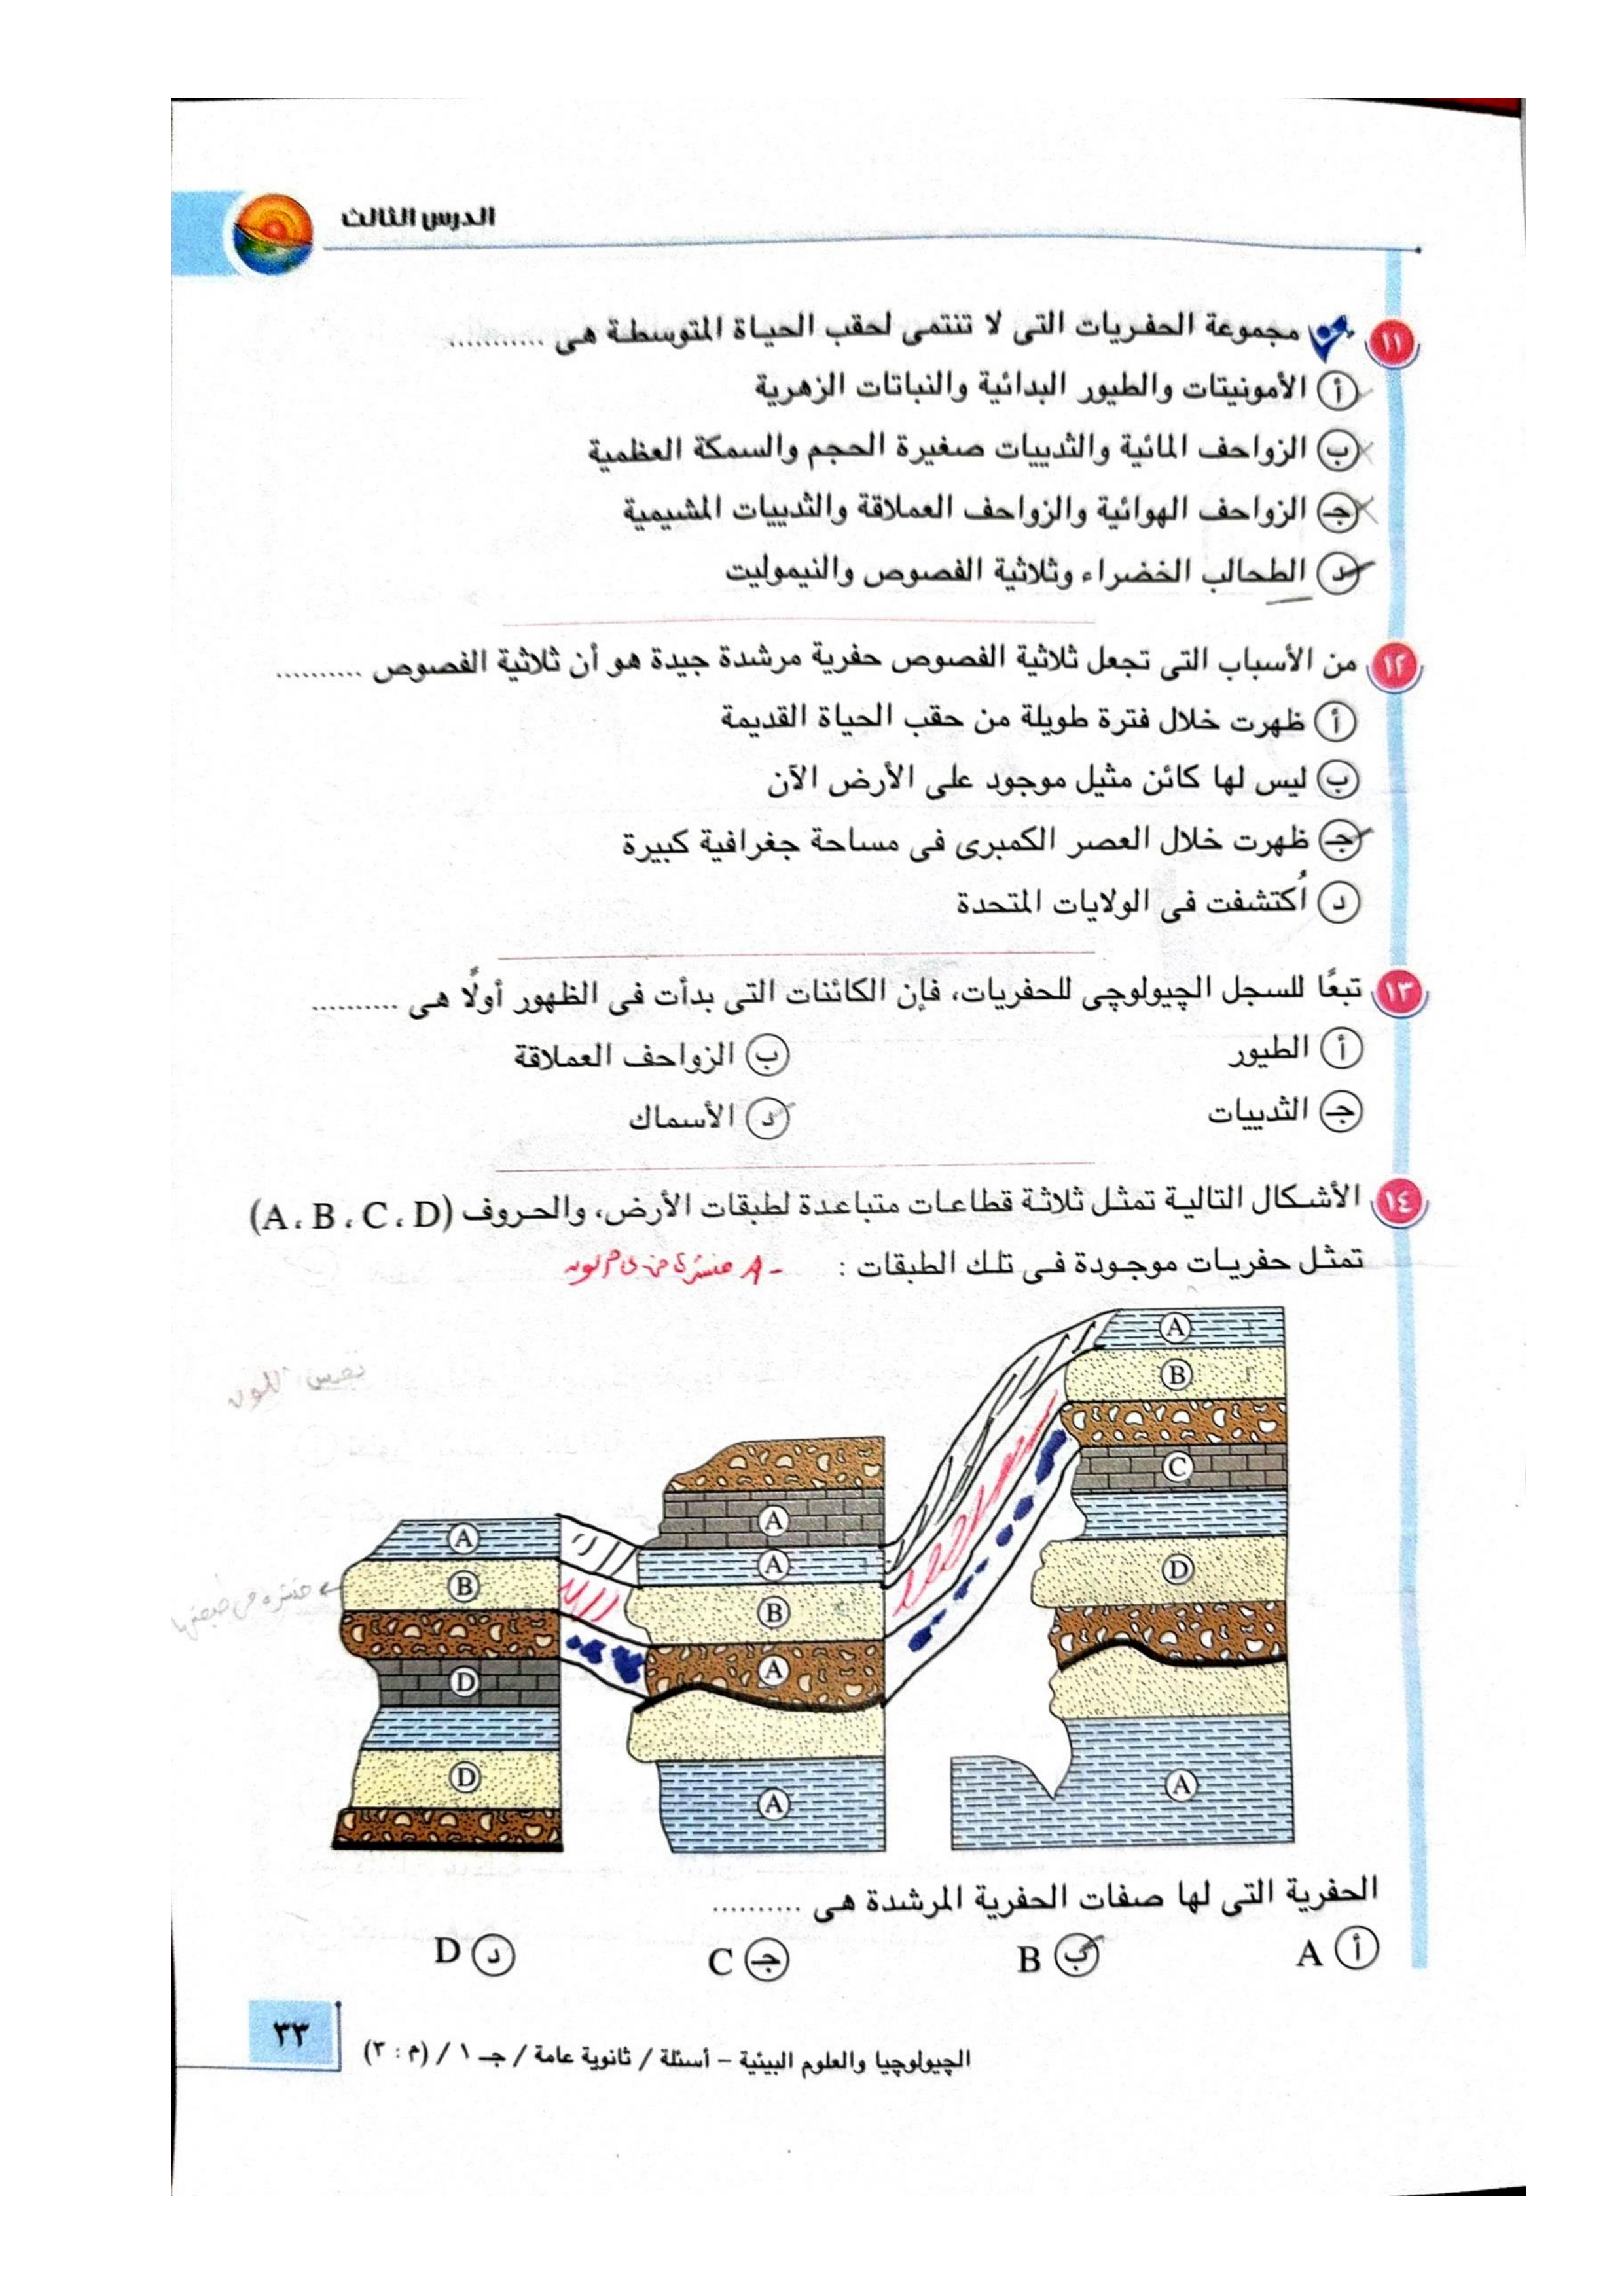 الدرس الثالث
١١ مجموعة الحفريات التى لا تنتمى لحقب الحياة المتوسطة هى ..........
أ الأمونيتات والطيور البدائية والنباتات الزهرية
ب الزواحف المائية والثدييات صغيرة الحجم والسمكة العظمية
جـ الزواحف الهوائية والزواحف العملاقة والثدييات المشيمية
د الطحالب الخضراء وثلاثية الفصوص والنيموليت
١٢ من الأسباب التى تجعل ثلاثية الفصوص حفرية مرشدة جيدة هو أن ثلاثية الفصوص ..........
أ ظهرت خلال فترة طويلة من حقب الحياة القديمة
ب ليس لها كائن مثيل موجود على الأرض الآن
جـ ظهرت خلال العصر الكمبرى فى مساحة جغرافية كبيرة
د اُكتشفت فى الولايات المتحدة
١٣ تبعًا للسجل الچيولوچى للحفريات، فإن الكائنات التى بدأت فى الظهور أولًا هى ..........
أ الطيور
ب الزواحف العملاقة
جـ الثدييات
د الأسماك
١٤ الأشكال التالية تمثل ثلاثة قطاعات متباعدة لطبقات الأرض، والحروف (A ، B ، C ، D)
تمثل حفريات موجودة فى تلك الطبقات :
A
B
C
D
A
A
A
B
A
A
A
B
D
D
الحفرية التى لها صفات الحفرية المرشدة هى ..........
أ A
ب B
جـ C
د D
٣٣
الچيولوچيا والعلوم البيئية – أسئلة / ثانوية عامة / جـ ١ / (م : ٣)